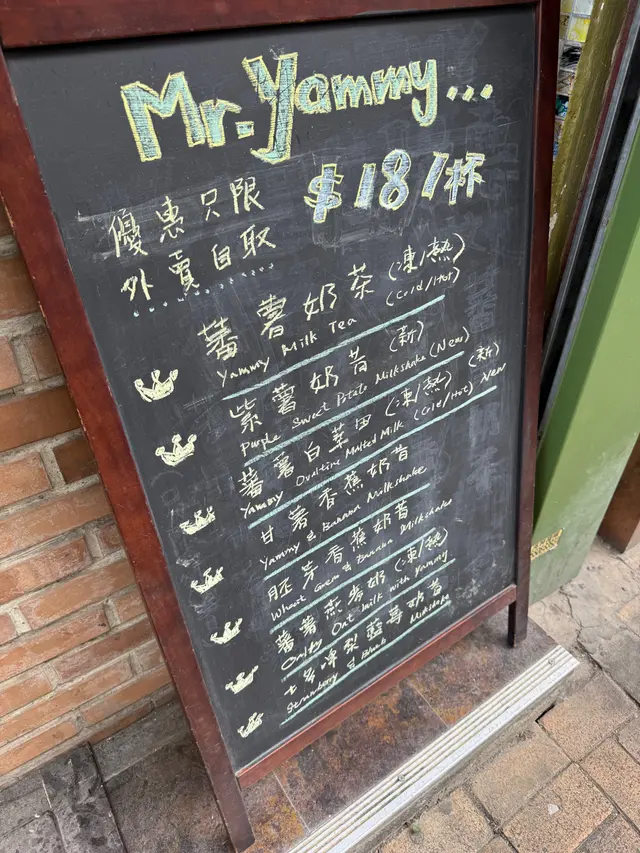 Mr. Yammy...
優惠只限
$18/杯
外賣自取
蕃薯奶茶 (凍/熱)
Yammy Milk Tea (Cold/Hot)
紫薯奶昔 (新)
Purple Sweet Potato Milkshake (New)
蕃薯白華田 (凍/熱) (新)
Yammy Ovaltine Malted Milk (Cold/Hot) New
甘薯香蕉奶昔
Yammy & Banana Milkshake
胚芽香蕉奶昔
Wheat Germ & Banana Milkshake
蕃薯燕麥奶 (凍/熱)
Oat Milk with Yammy
士多啤梨藍莓奶昔
Strawberry & Milkshake